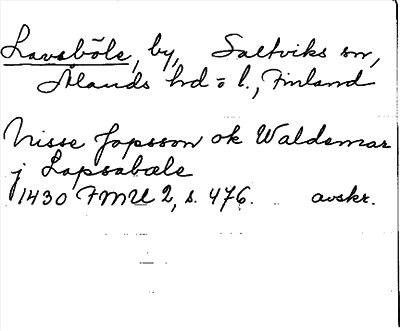 Lavsböle, by, Saltviks sn,
Ålands hd o l., Finland
Nisse Japsson ok Waldemar
j Lapsabøle
1430 FMU 2, s. 476. avskr.